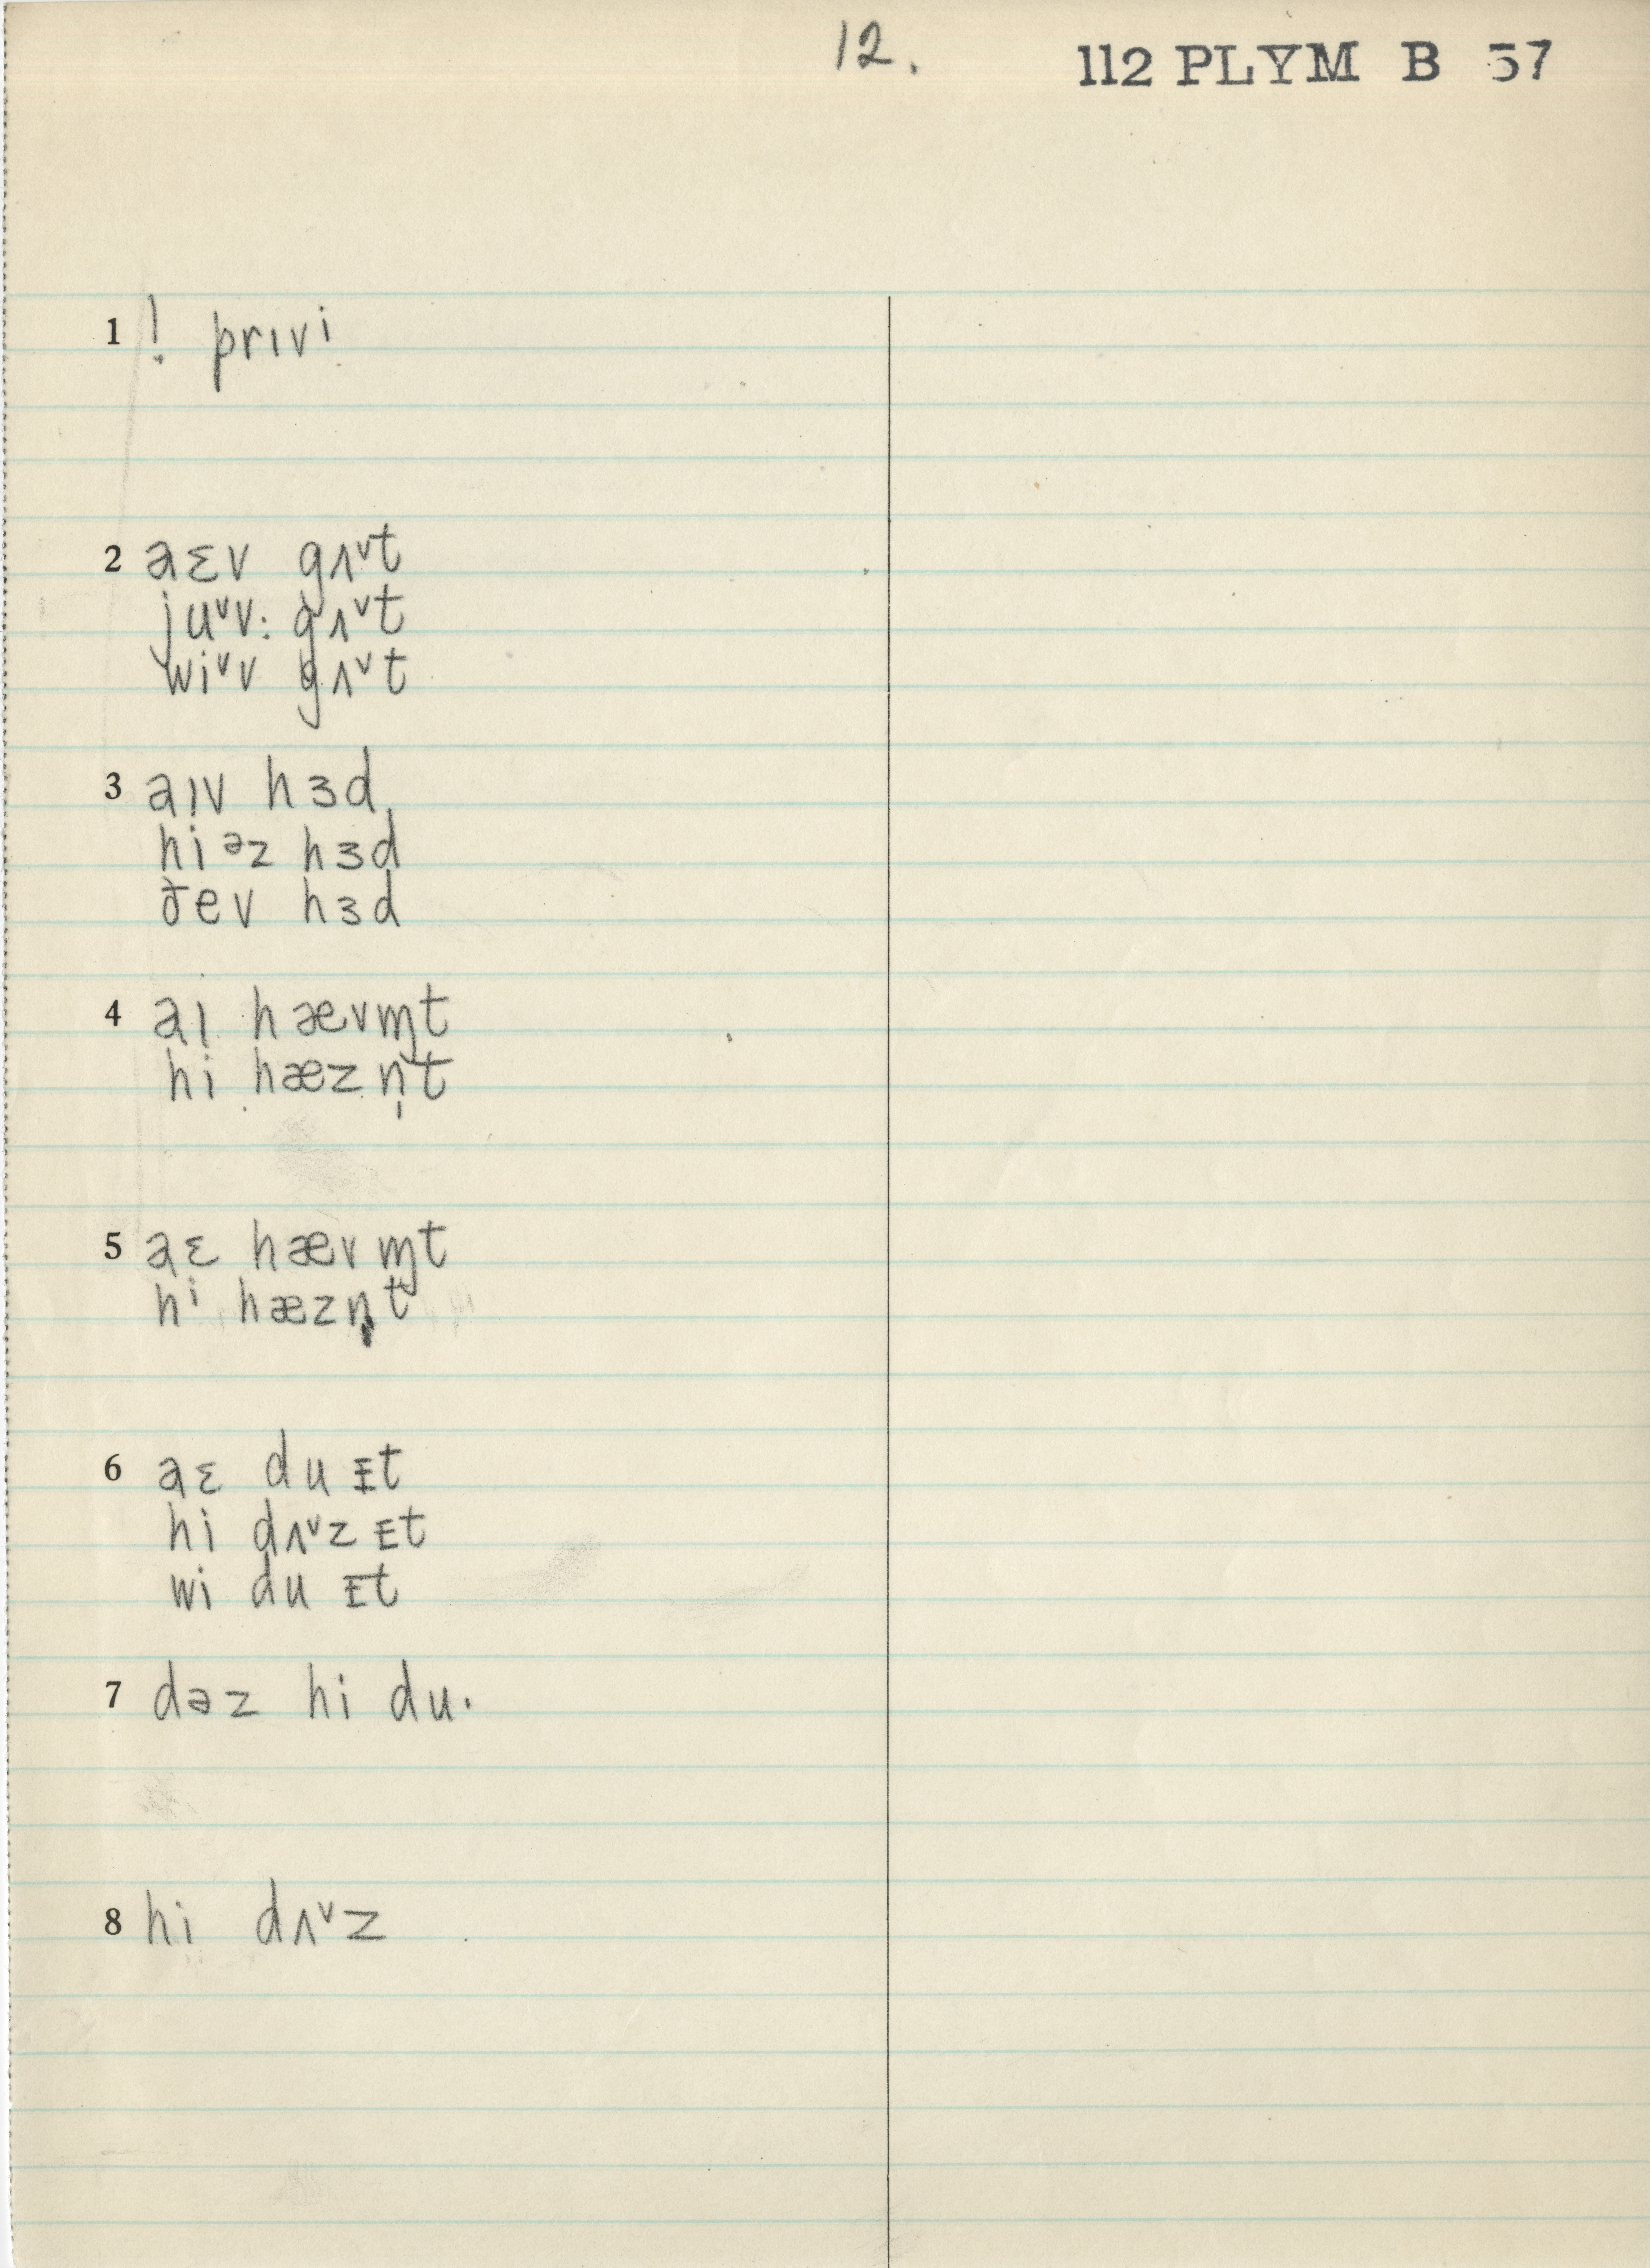 12. 112 PLYM B 57
1 ! prɪvi
2 aɛv gʌ˅t
ju˅v: gʌ˅t
wi˅v gʌ˅t
3 aɪv hɜd
hi ᵊz hɜd
ðev hɜd
4 aɪ hævm̩t
hi hæzn̩t
5 aɛ hævm̩t
hi hæzn̩t
6 aɛ du ᵻt
hi dʌ˅z ɪt
wi du ɪt
7 dəz hi du·
8 hi dʌ˅z